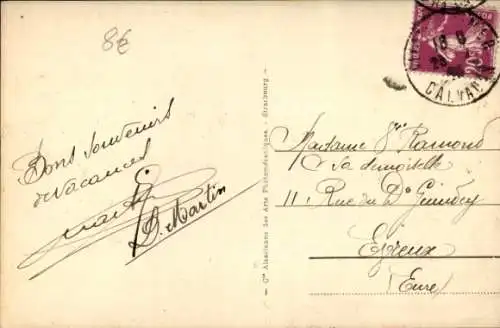 8€
Bons souvenirs
de vacances
D. Martin
Cie Alsacienne des Arts Photomécaniques - Strasbourg
18 8
CALVAD
20
Madame Raimond
sa demoiselle
11 Rue du Dr
Evreux
(Eure)